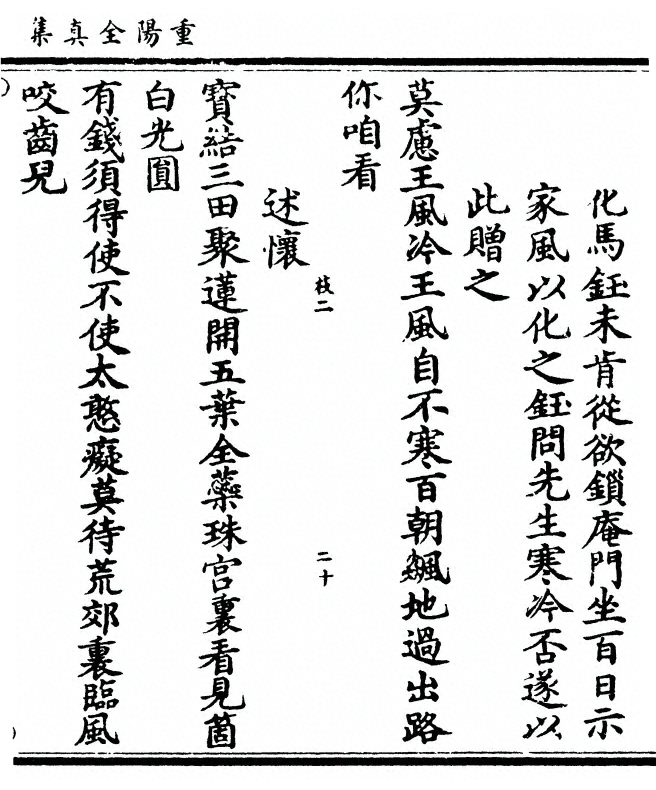 重陽全真集
化馬鈺未肯從欲鎖庵門坐百日示
家風以化之鈺問先生寒冷否遂以
此贈之
莫慮王風冷王風自不寒百朝飆地過出路
你咱看
枝二
二十
述懷
寶結三田聚蓮開五葉全蘂珠宮裏看見箇
白光圓
有錢須得使不使太憨癡莫待荒郊裏臨風
咬齒兒